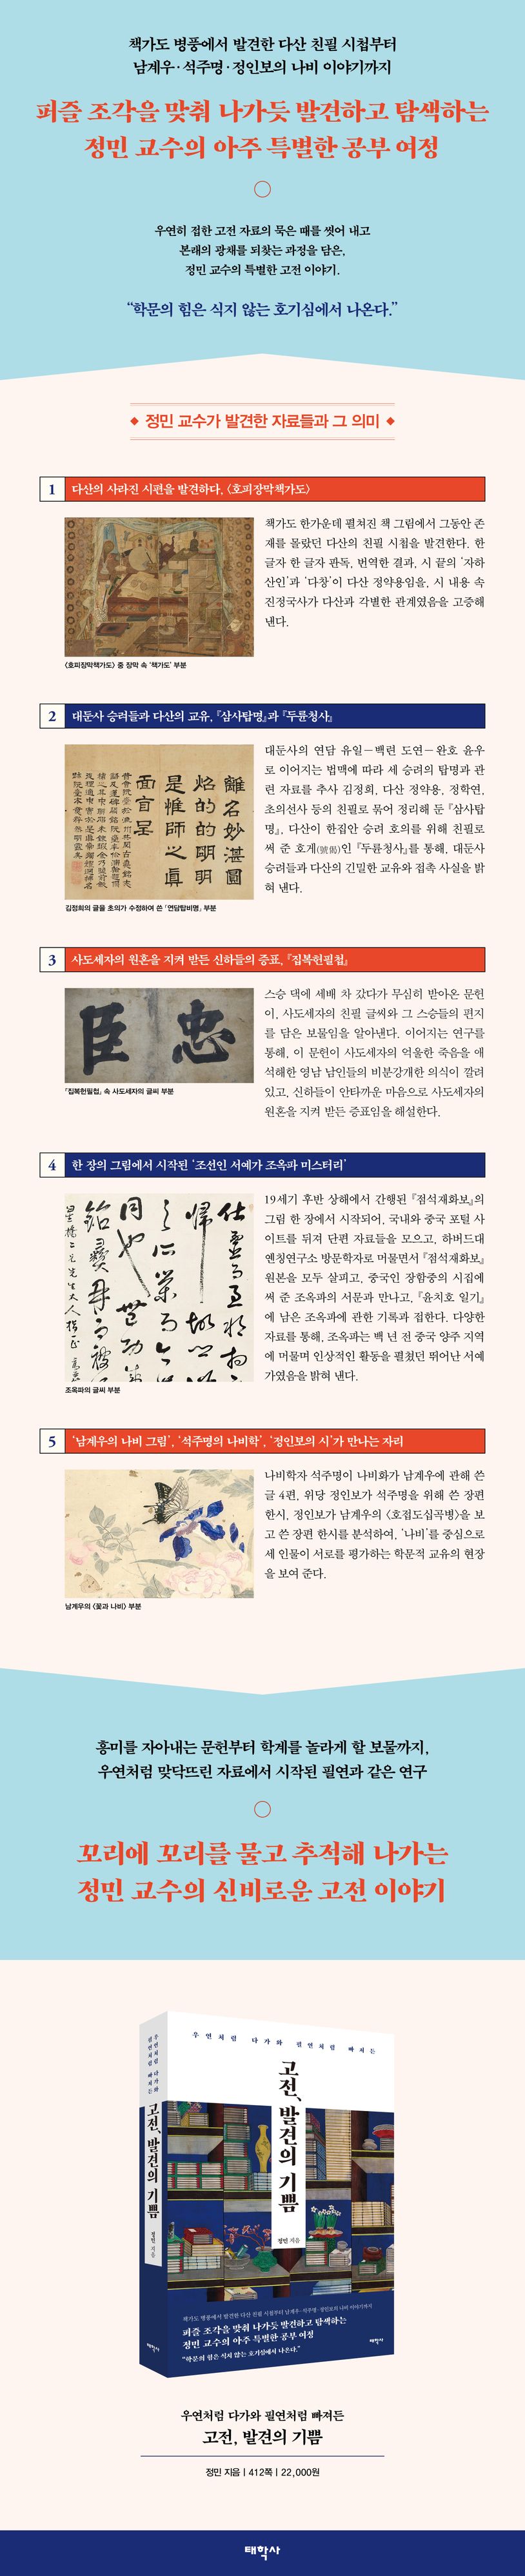 책가도 병풍에서 발견한 다산 친필 시첩부터
남계우·석주명·정인보의 나비 이야기까지
퍼즐 조각을 맞춰 나가듯 발견하고 탐색하는
정민 교수의 아주 특별한 공부 여정
우연히 접한 고전 자료의 묵은 때를 씻어 내고
본래의 광채를 되찾는 과정을 담은,
정민 교수의 특별한 고전 이야기.
“학문의 힘은 식지 않는 호기심에서 나온다.”
◆ 정민 교수가 발견한 자료들과 그 의미 ◆
1 다산의 사라진 시편을 발견하다, 〈호피장막책가도〉
책가도 한가운데 펼쳐진 책 그림에서 그동안 존
재를 몰랐던 다산의 친필 시첩을 발견한다. 한
글자 한 글자 판독, 번역한 결과, 시 끝의 ‘자하
산인’과 ‘다창’이 다산 정약용임을, 시 내용 속
진정국사가 다산과 각별한 관계였음을 고증해
낸다.
〈호피장막책가도〉 중 장막 속 ‘책가도’ 부분
2 대둔사 승려들과 다산의 교유, 『삼사탑명』과 『두륜청사』
대둔사의 연담 유일－백련 도연－완호 윤우
로 이어지는 법맥에 따라 세 승려의 탑명과 관
련 자료를 추사 김정희, 다산 정약용, 정학연,
초의선사 등의 친필로 묶어 정리해 둔 『삼사탑
명』, 다산이 한집안 승려 호의를 위해 친필로
써 준 호게(號偈)인 『두륜청사』를 통해, 대둔사
승려들과 다산의 긴밀한 교유와 접촉 사실을 밝
혀 낸다.
離名妙湛圓
焰的的明明
是惟師之眞
面盲呈
김정희의 글을 초의가 수정하여 쓴 「연담탑비명」 부분
3 사도세자의 원혼을 지켜 받든 신하들의 증표, 『집복헌필첩』
스승 댁에 세배 차 갔다가 무심히 받아온 문헌
이, 사도세자의 친필 글씨와 그 스승들의 편지
를 담은 보물임을 알아낸다. 이어지는 연구를
통해, 이 문헌이 사도세자의 억울한 죽음을 애
석해한 영남 남인들의 비분강개한 의식이 깔려
있고, 신하들이 안타까운 마음으로 사도세자의
원혼을 지켜 받든 증표임을 해설한다.
忠
臣
『집복헌필첩』 속 사도세자의 글씨 부분
4 한 장의 그림에서 시작된 ‘조선인 서예가 조옥파 미스터리’
19세기 후반 상해에서 간행된 『점석재화보』의
그림 한 장에서 시작되어, 국내와 중국 포털 사
이트를 뒤져 단편 자료들을 모으고, 하버드대
옌칭연구소 방문학자로 머물면서 『점석재화보』
원본을 모두 살피고, 중국인 장함중의 시집에
써 준 조옥파의 서문과 만나고, 『윤치호 일기』
에 남은 조옥파에 관한 기록과 접한다. 다양한
자료를 통해, 조옥파는 백 년 전 중국 양주 지역
에 머물며 인상적인 활동을 펼쳤던 뛰어난 서예
가였음을 밝혀 낸다.
조옥파의 글씨 부분
5 ‘남계우의 나비 그림’, ‘석주명의 나비학’, ‘정인보의 시’가 만나는 자리
나비학자 석주명이 나비화가 남계우에 관해 쓴
글 4편, 위당 정인보가 석주명을 위해 쓴 장편
한시, 정인보가 남계우의 〈호접도십곡병〉을 보
고 쓴 장편 한시를 분석하여, ‘나비’를 중심으로
세 인물이 서로를 평가하는 학문적 교유의 현장
을 보여 준다.
남계우의 〈꽃과 나비〉 부분
흥미를 자아내는 문헌부터 학계를 놀라게 할 보물까지,
우연처럼 맞닥뜨린 자료에서 시작된 필연과 같은 연구
꼬리에 꼬리를 물고 추적해 나가는
정민 교수의 신비로운 고전 이야기
우연처럼 다가와 필연처럼 빠져든
고전, 발견의 기쁨
정민 지음
태학사
우연처럼 다가와 필연처럼 빠져든
고전, 발견의 기쁨
정민 지음
책가도 병풍에서 발견한 다산 친필 시첩부터 남계우·석주명·정인보의 나비 이야기까지
퍼즐 조각을 맞춰 나가듯 발견하고 탐색하는
정민 교수의 아주 특별한 공부 여정
“학문의 힘은 식지 않는 호기심에서 나온다.”
태학사
우연처럼 다가와 필연처럼 빠져든
고전, 발견의 기쁨
정민 지음 | 412쪽 | 22,000원
태학사